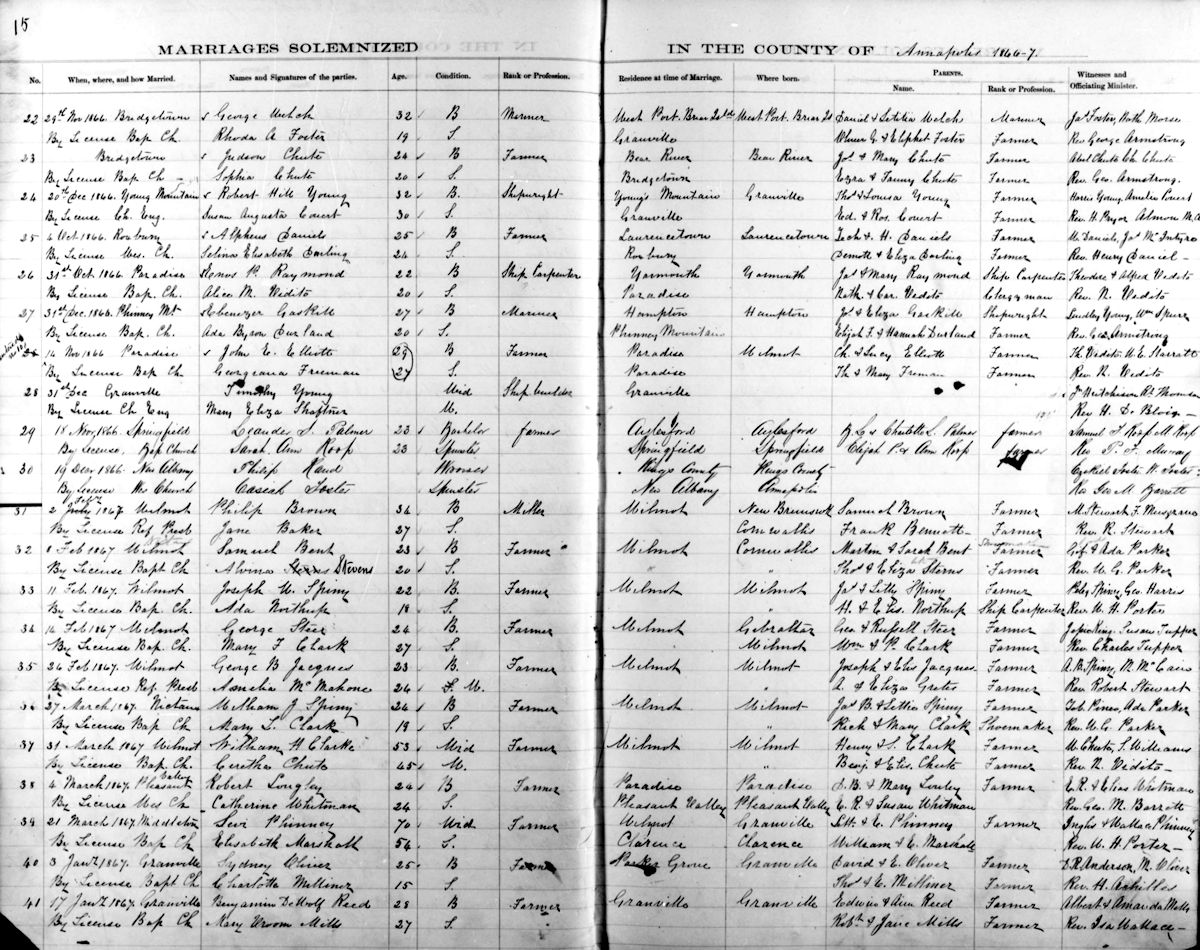 15
MARRIAGES SOLEMNIZED IN THE COUNTY OF Annapolis 1866-7.
No. When, where, and how Married. Names and Signatures of the parties. Age. Condition. Rank or Profession. Residence at time of Marriage. Where born. PARENTS. Name. Rank or Profession. Witnesses and Officiating Minister.
22 29th Nov 1866 Bridgetown s George Welch 32 B Mariner West Port. Briar Isld West Port. Briar Is Daniel & Letitia Welch Mariner Jas Foster, Nath Morse
By License Bap Ch. Rhoda A Foster 19 S. Granville Foster Farmer Rev. George Armstrong
23 Bridgetown s Judson Chute 24 B Farmer Bear River Bear River Jos. & Mary Chute Farmer Abel Chute Ch. Chute
By License Bap Ch Sophia Chute 20 S. Bridgetown Ezra & Fanny Chute Farmer Rev. Geo. Armstrong.
24 20th Dec 1866. Young Mountain s Robert Hill Young 32 B. Shipwright Young's Mountain Granville Thos & Louisa Young Farmer Harris Young, Amelia
By License Ch. Eng. Susan Augusta 30 S. Granville Ed. & Ros. Farmer Rev. H Pryor Almon M.A
25 4 Oct. 1866. Roxbury s Alpheus Daniels 25 B Farmer Laurencetown Laurencetown Zach & H. Daniels Farmer W. Daniels, Jas McIntyre
By License Wes. Ch. Selina Elisabeth Durling 24 S. Roxbury Demott & Eliza Durling Farmer Rev. Henry Daniel
26 31st Oct. 1866 Paradise Enos P. Raymond 22 B Ship Carpenter Yarmouth Yarmouth Jas & Mary Raymond Ship Carpenter Theodore & Alfred Vidito
By License Bap. Ch. Alice M. Vidito 20 S. Paradise Nath. & Car. Vidito Clergyman Rev. N. Vidito
27 31st Dec. 1866. Phinney Mt Ebenezer Gaskill 27 B Mariner Hampton Hampton Jos & Eliza Gaskill Shipwright Lindley Young, Wm Spurr
By License Bap. Ch. Ada Byron Durland 20 S. Phinney Mountain Elijah F. & Hannah Durland Farmer Rev. Geo Armstrong
14 Nov 1866 Paradise s John E. Elliott 29 B Farmer Paradise Wilmot Ch. & Lucy Elliott Farmer Th Vidito W. E. Starratt
By License Bap Ch Georgeana Freeman 27 S. Paradise Th & Mary Freeman Farmer Rev. N. Vidito
28 31st Dec Granville Timothy Young Wid Ship builder Granville
By License Ch Eng Mary Eliza Shaffner W. Rev H. D. Blois
29 18 Nov, 1866. Springfield Leander S. Palmer 23 Bachelor farmer Aylesford Aylesford & Charlotte L. Palmer farmer Samuel
By License, Bap Church Sarah Ann Roop 23 Spinster Springfield Springfield Elijah P. & Ann Roop farmer Rev P. F. Murray
30 19 Decr 1866. New Albany Philip Kings County Kings County Ezekiel Foster W. Foster
By License Wes Church Casiah Foster Spinster New Albany Annapolis Rev Geo M. Barratt
31 2 Feby 1867. Wilmot Philip Brown 34 B Miller Wilmot New Brunswick Samuel Brown Farmer M. Stewart F. Musgrave
By License Ref Presb Jane Baker 27 S. Cornwallis Frank Bennett Farmer Rev. R. Stewart
32 1 Feb 1867 Wilmot Samuel Bent 23 B Farmer Wilmot Cornwallis Martin & Sarah Bent Farmer & Ada Parker
By License Bapt Ch Alvina Stevens 20 S. " Thos & Eliza Farmer Rev. W. G. Parker
33 11 Feb. 1867. Wilmot Joseph W. Spinny 22 B Farmer Wilmot " Jas & Letty Spinny Farmer Spinny, Geo. Harris
By License Bap. Ch. Ada Northup 18 S. " H. & Elis. Northup Ship Carpenter Rev. W. H. Porter
34 14 Feb 1867 Wilmot George Steer 24 B. Farmer Wilmot Gibraltar Geo. & Russell Steer Farmer King. Susan Tupper
By License Bap. Ch. Mary F Clark 27 S. Wilmot Wm & P. Clark Farmer Rev. Charles Tupper
35 26 Feb 1867. Wilmot George B Jacques 23 B. Farmer Wilmot Wilmot Joseph & Elis Jacques Farmer Spinny, M. McCain
By License Ref. Presb Amelia McMahone 24 " A. & Eliza Farmer Rev. Robert Stewart
36 27 March 1867. Nictaux William J Spinny 24 B Farmer Wilmot Wilmot Jas B & Lettia Spinny Farmer Pineo, Ada Parker
By License Bap Ch Mary L. Clark 19 S. " Rich & Mary Clark Shoemaker Rev. W. G. Parker
37 31 March 1867 Wilmot William H Clarke 53 Wid Farmer Wilmot Wilmot Henry & S. Clark Farmer W. Chute, S. Williams
By License Bap. Ch. Ceretha Chute 45 W. " Benj. & Elis. Chute Farmer Rev. N. Vidito
38 4 March 1867. Pleasant Valley Robert Longley 24 B Farmer Paradise Paradise & Mary Longley Farmer E. R. & Elias Whitman
By License Wes Ch. Catherine Whitman 24 S. Pleasant Valley Pleasant Valley E. R. & Susan Whitman Farmer Rev. Geo. M. Barratt
39 21 March 1867. Middleton Levi Phinney 70 Wid Farmer Wilmot Granville & E. Phinney Farmer Inglis & Wallace Phinney
By License Bap Ch Elisabeth Marshall 54 S. Clarence Clarence William & E. Marshall Rev. W. H. Porter
40 3 Jany 1867. Granville Sydney Oliver 25 B Farmer Parker Grove Granville David & E. Oliver Farmer D. R. Anderson, M. Oliver
By License Bapt Ch Charlotte Milliner 15 S. Thos & E. Milliner Farmer Rev. H. Achilles
41 17 Jany 1867. Granville Benjamin DeWolf Reed 28 B Farmer Granville Granville Edwin & Ann Reed Farmer Albert & Amanda Mills
By License Bap Ch. Mary Vroom Mills 27 S. Robt & Jane Mills Farmer Rev. Isa Wallace